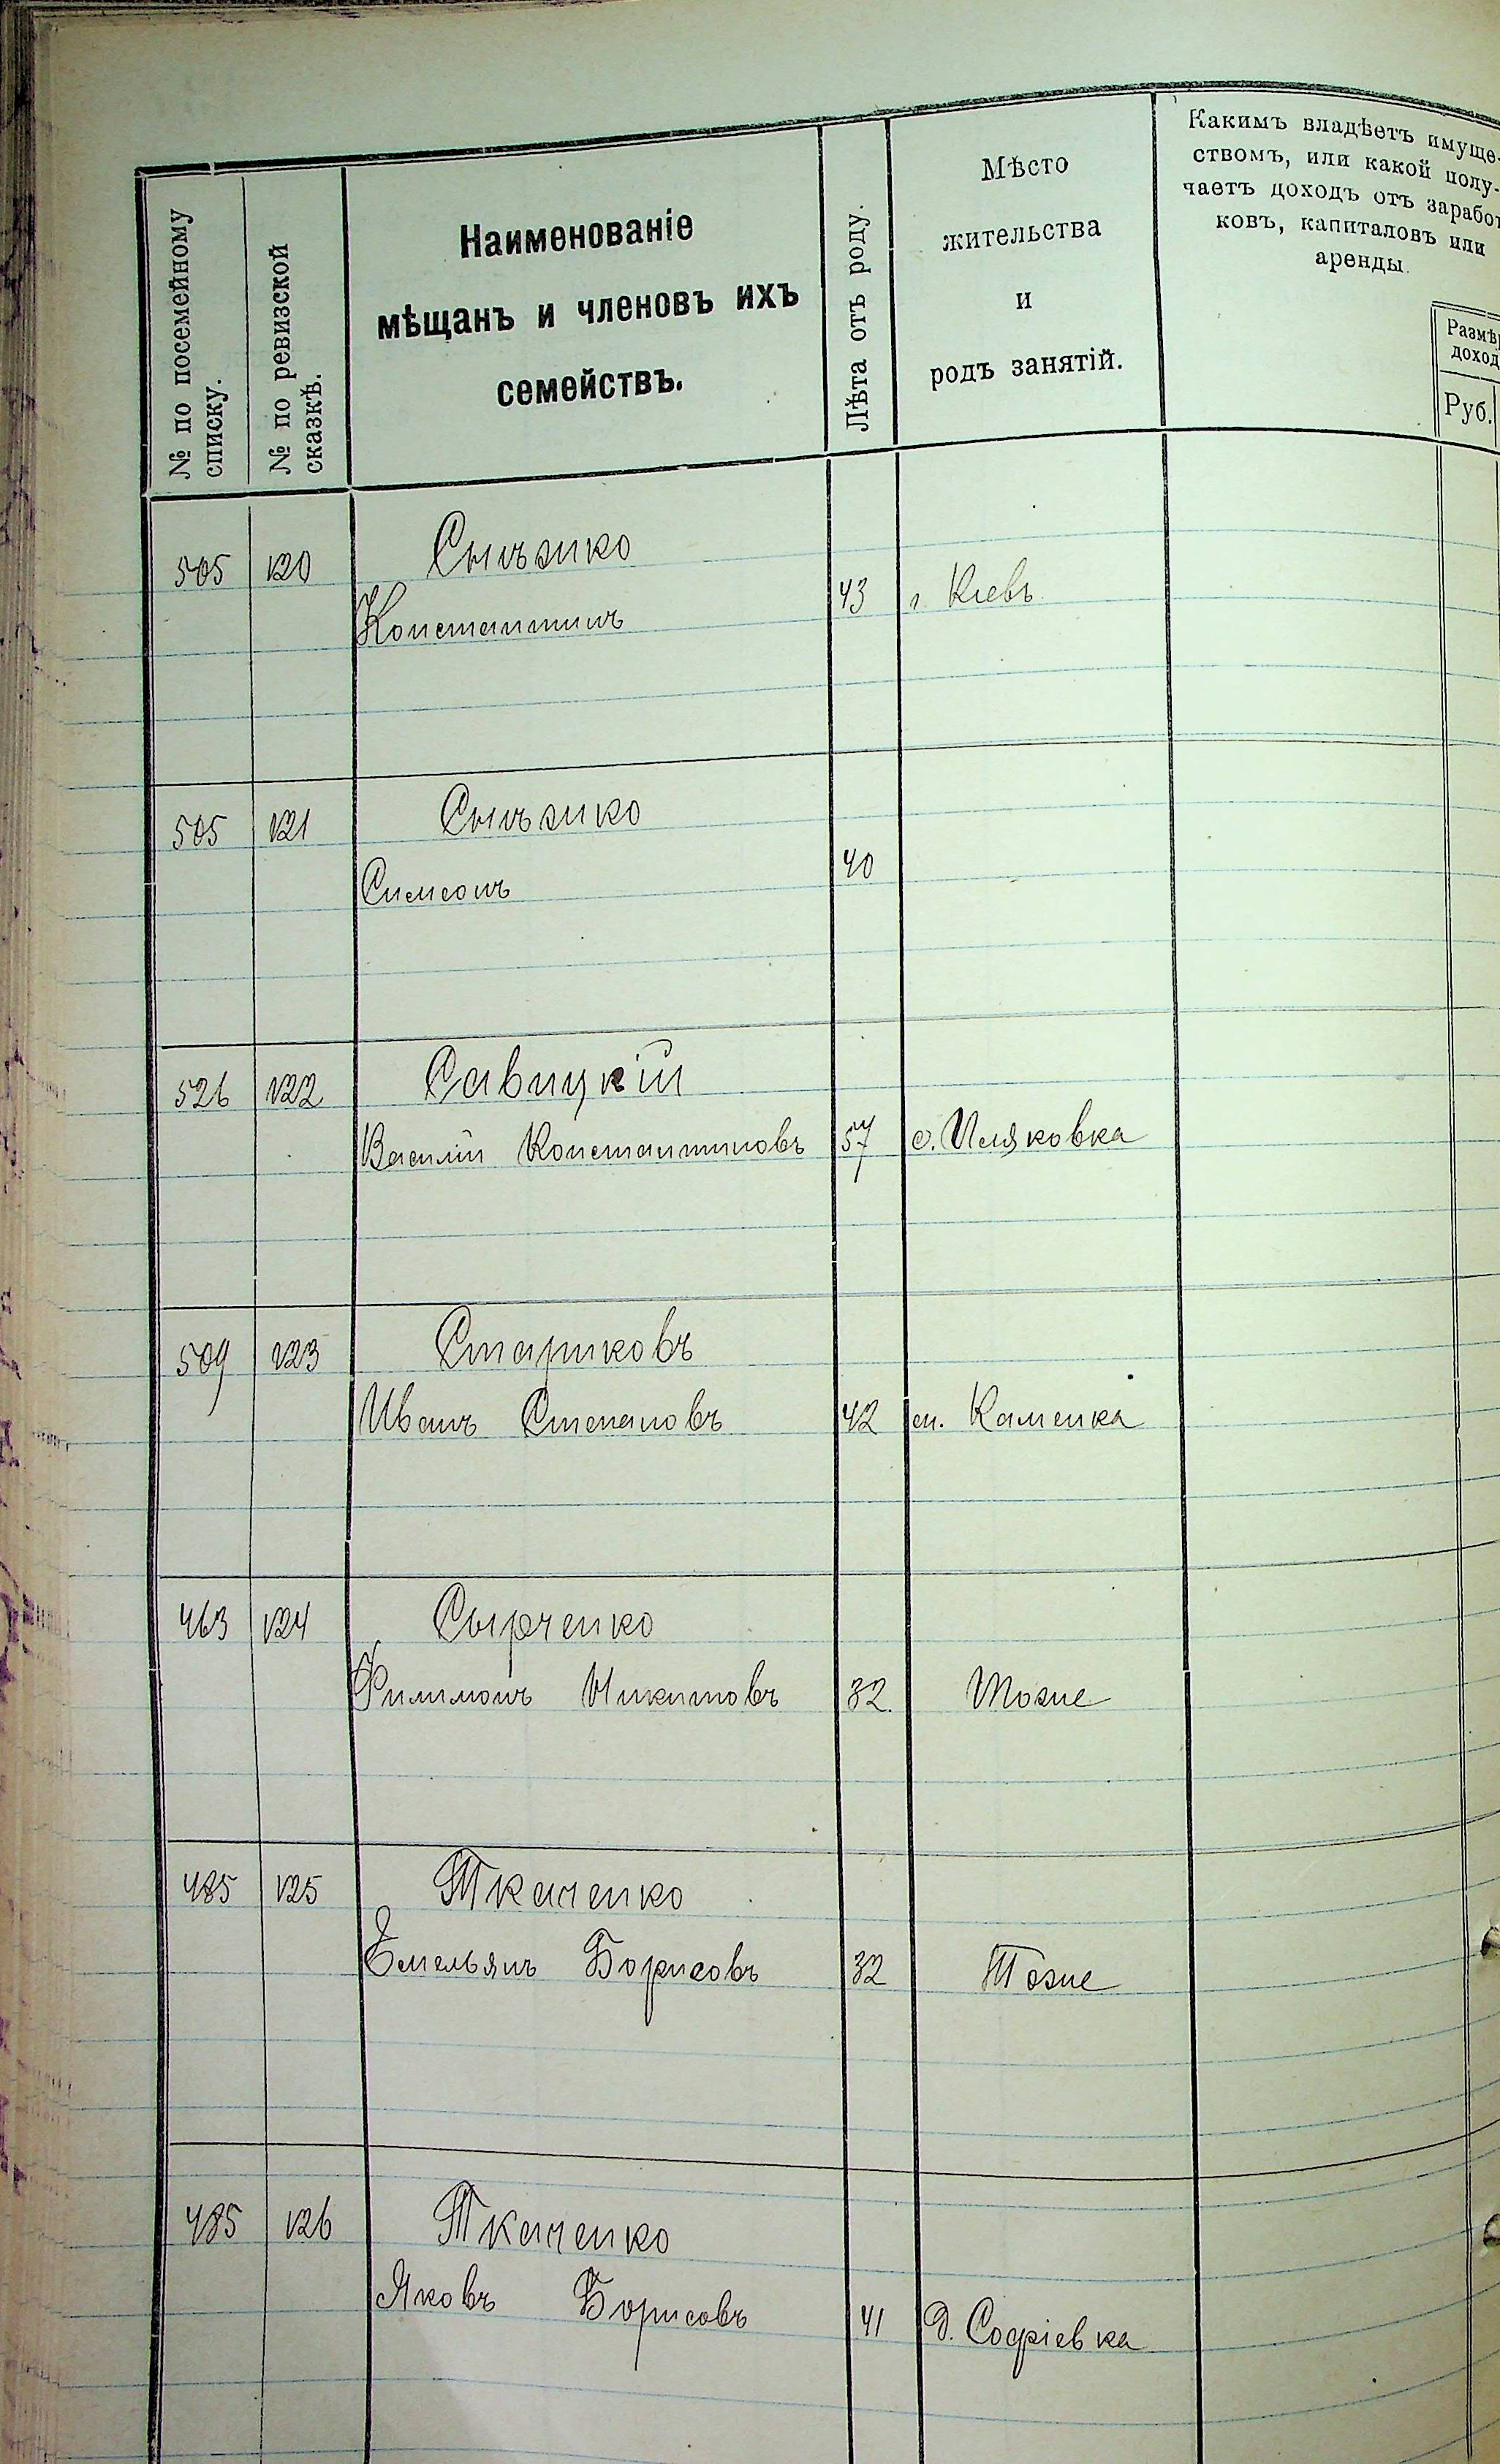 № по посемейному
списку.
№ по ревизской
сказкѣ.
Наименованіе
мѣщанъ и членовъ ихъ
семействъ.
Лѣта отъ роду.
Мѣсто
жительства
и
родъ занятій.
Какимъ владѣетъ имуще-
ствомъ, или какой полу-
чаетъ доходъ отъ заработ
ковъ, капиталовъ или
аренды.
Размѣр
доход
Руб.
505 120
Константинъ 43 г. Кіевъ
505 121
Симеонъ 40
526 122 Савицкій
Василій Константиновъ 57 с. Иляковка
509 123 Стариковъ
Иванъ Степановъ 42 ст. Каменка
463 124 Сырченко
Филимонъ Никитовъ 32. Тозие
485 125 Ткаченко
Емельянъ Борисовъ 32 Тозие
485 126 Ткаченко
Яковъ Борисовъ 41 д. Софіевка